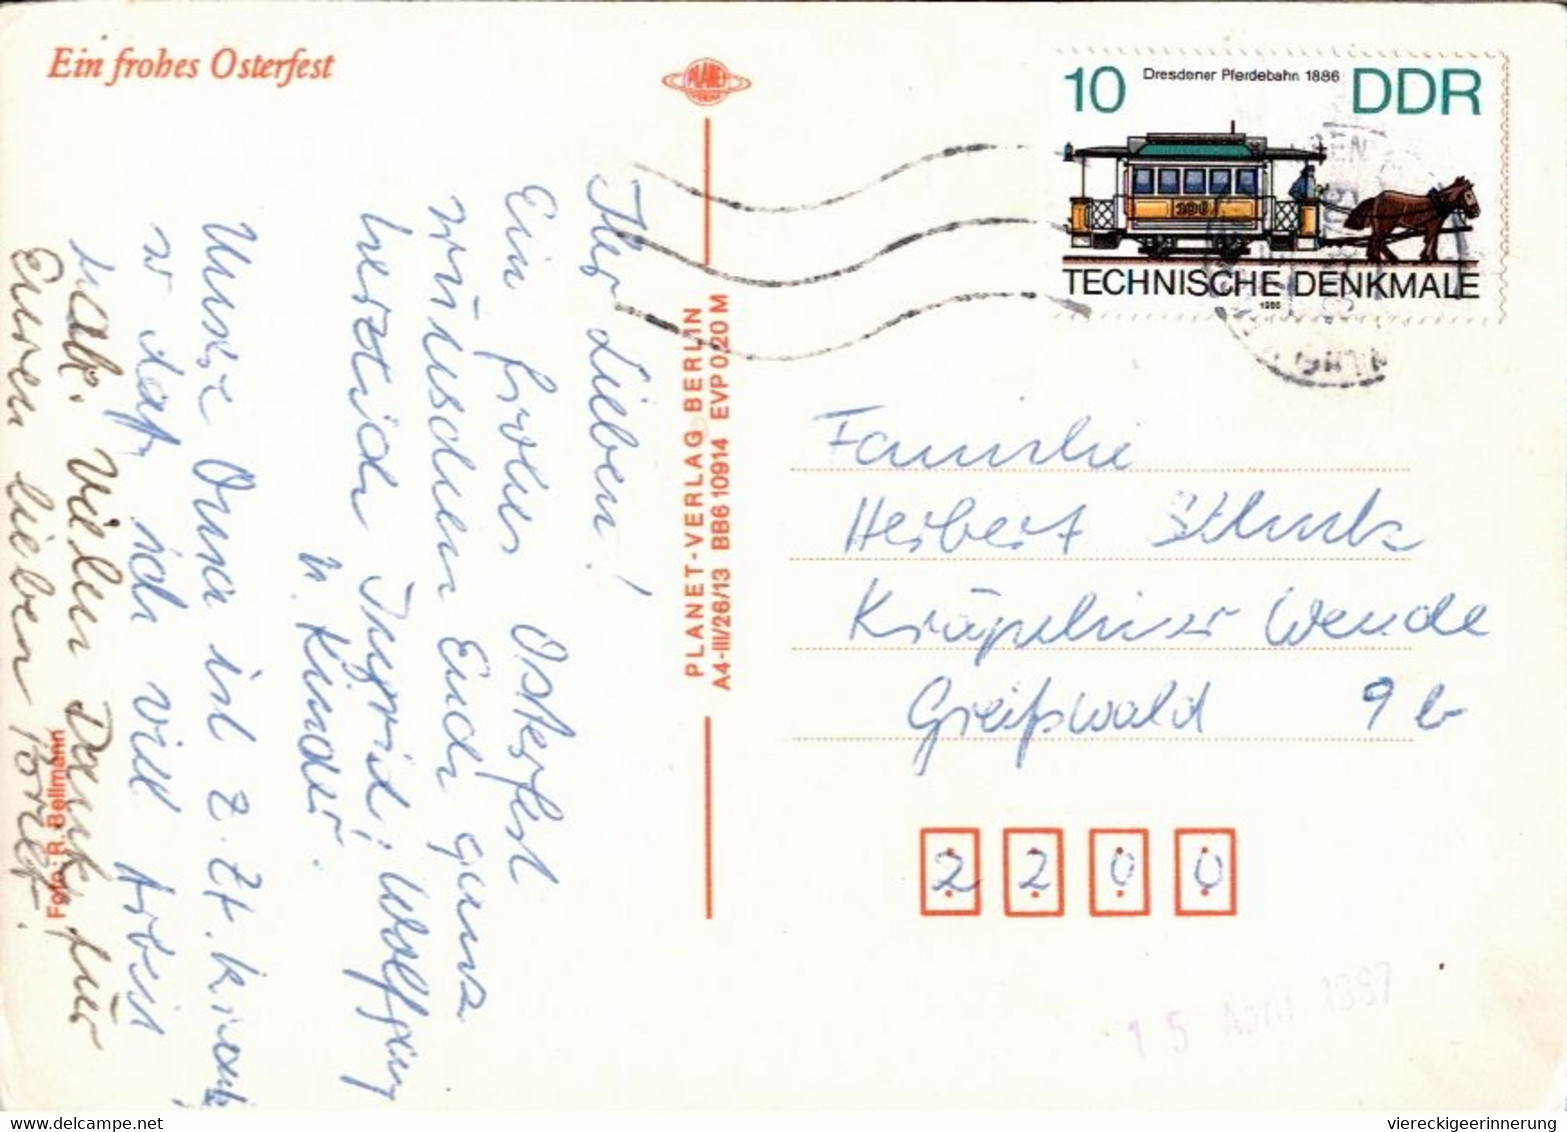 Ein frohes Osterfest
PLANET
10 Dresdener Pferdebahn 1886 DDR
TECHNISCHE DENKMALE
1986
Ihr Lieben!
Ein frohes Osterfest
wünschen Euch ganz
herzlich Ingrid, Wolfgang
u. Kinder.
Unsre Oma ist z. Zt. krank
ich will
Vielen Dank für
Euren lieben
PLANET-VERLAG BERLIN
A4-III/26/13 BB6 10914 EVP 0,20 M
Foto: R. Bellmann
Familie
Herbert
Kräpeliner Wende
Greifswald 9 b
2 2 0 0
15 April 1987
viereckigeerinnerung